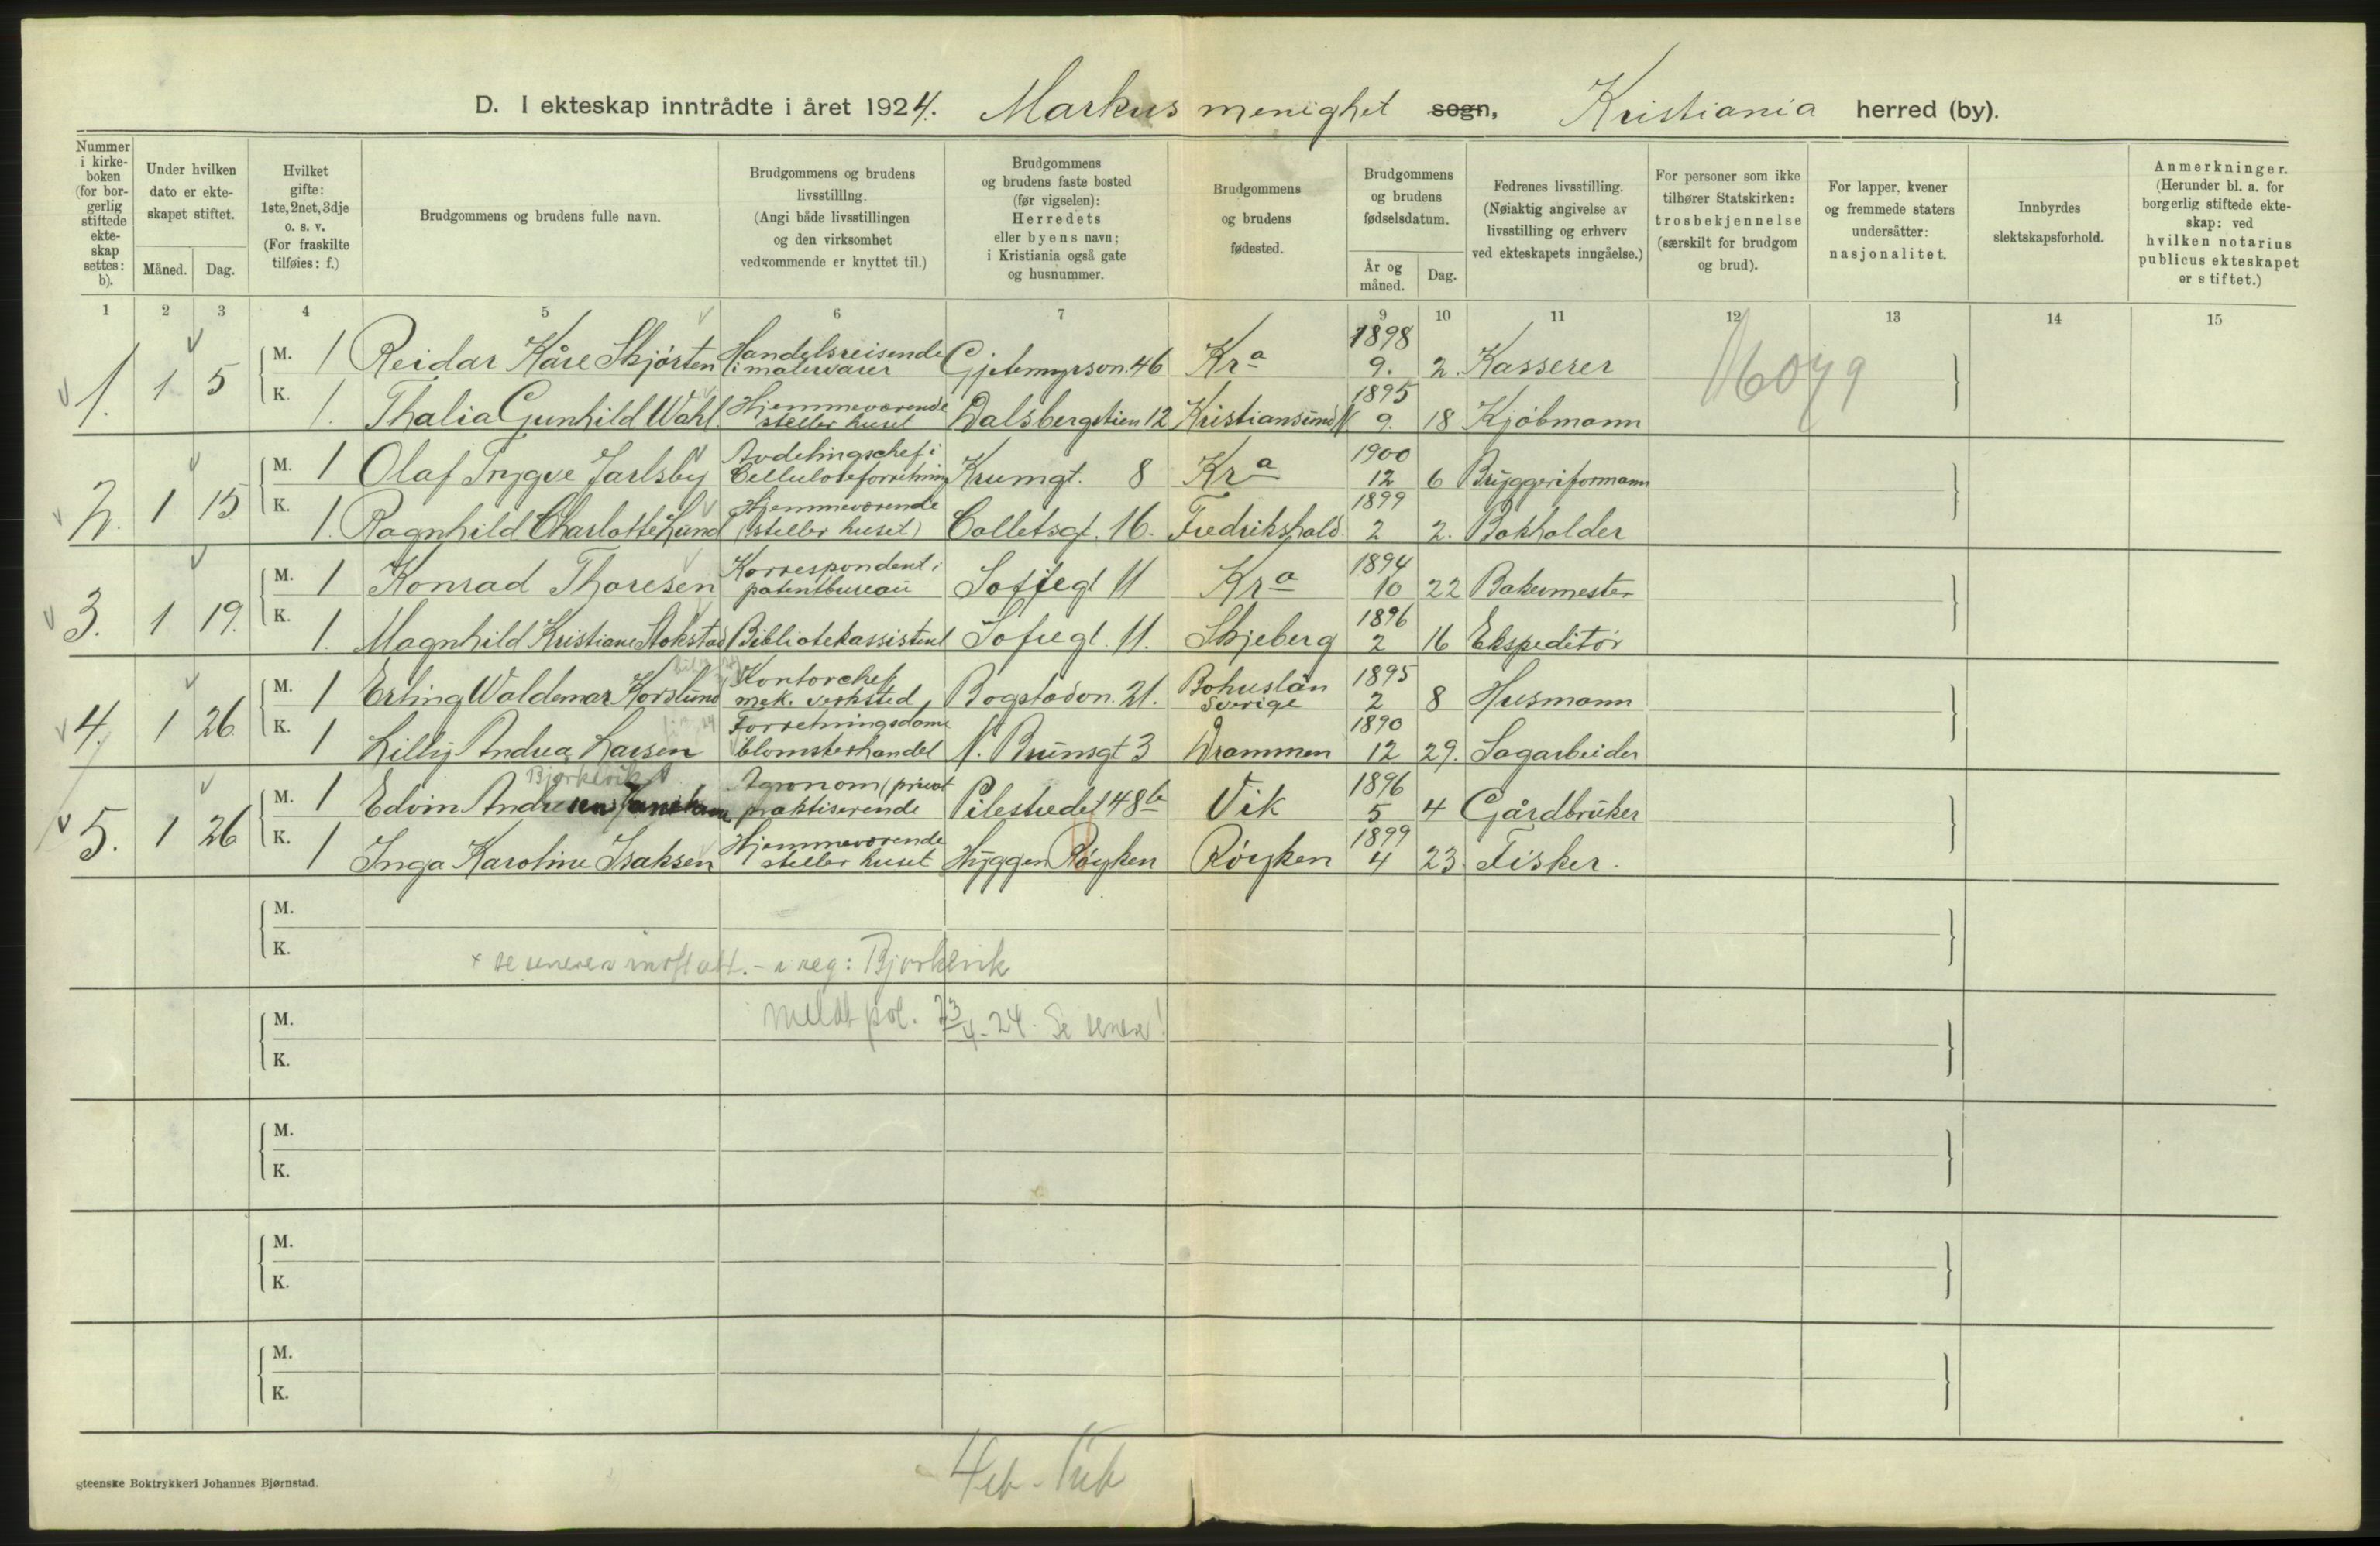 D. I ekteskap inntrådte i året 1924. Markus menighet sogn, Kristiania herred (by).
Nummer i kirke- boken (for bor- gerlig stiftede ekte- skap settes: b).
Under hvilken dato er ekte- skapet stiftet.
Måned. Dag.
Hvilket gifte: 1ste, 2net, 3dje o. s. v. (For fraskilte tilføies: f.)
Brudgommens og brudens fulle navn.
Brudgommens og brudens livsstilling. (Angi både livsstillingen og den virksomhet vedkommende er knyttet til.)
Brudgommens og brudens faste bosted (før vigselen): Herredets eller byens navn; i Kristiania også gate og husnummer.
Brudgommens og brudens fødested.
Brudgommens og brudens fødselsdatum.
År og måned. Dag.
Fedrenes livsstilling. (Nøiaktig angivelse av livsstilling og erhverv ved ekteskapets inngåelse.)
For personer som ikke tilhører Statskirken: trosbekjennelse (særskilt for brudgom og brud).
For lapper, kvener og fremmede staters undersåtter: nasjonalitet.
Innbyrdes slektskapsforhold.
Anmerkninger. (Herunder bl. a. for borgerlig stiftede ekte- skap: ved hvilken notarius publicus ekteskapet er stiftet.)
1 2 3 4 5 6 7 9 10 11 12 13 14 15
1. 1 5 M. 1 Reidar Kåre Skjørten Handelsreisende i malervarer Gjetemyrsvn. 46 Kra 1898 9. 2. Kasserer
K. 1. Thalia Gunhild Wahl Hjemmeværende steller huset Dalsbergstien 12 Kristiansund N. 1895 9. 18 Kjøbmann
16079
2. 1 15 M. 1 Olaf Trygve Jarlsby Avdelingschef i Celluloseforretning Krumgt. 8 Kra 1900 12 6 Bryggeriformann
K. 1. Ragnhild Charlotte Lund Hjemmeværende (steller huset) Colletsgt. 16. Fredrikshald 1899 2 2. Bokholder
3. 1 19. M. 1 Konrad Thoresen Korrespondent i patentbureau Sofiegt 11 Kra 1894 10 22 Bakermester
K. 1. Magnhild Kristiane Stokstad Bibliotekassistent Sofiegt. 11. Skjeberg 1896 2 16 Ekspeditør
4. 1 26 M. 1 Erling Waldemar Korslund Kontorchef mek. verksted Bogstadvn. 21. Bohuslän Sverige 1895 2 8 Husmann
K. 1 Lilly Andrea Larsen Forretningsdame blomsterhandel N. Brunsgt 3 Drammen 1890 12 29. Sagarbeider
Bjørkevik
5. 1 26 M. 1 Edvin Andresen Agronom (privat praktiserende Pilestredet 48b Vik 1896 5 4 Gårdbruker
K. 1 Inga Karoline Isaksen Hjemmeværende steller huset Hyggen Røyken Røyken 1899 4 23. Fisker.
M.
K.
+ se senere . - i reg: Bjørkevik
M. meldt pol. 23/4-24. Se senere!
K.
M.
K.
M.
K.
M.
K.
Steenske Boktrykkeri Johannes Bjørnstad.